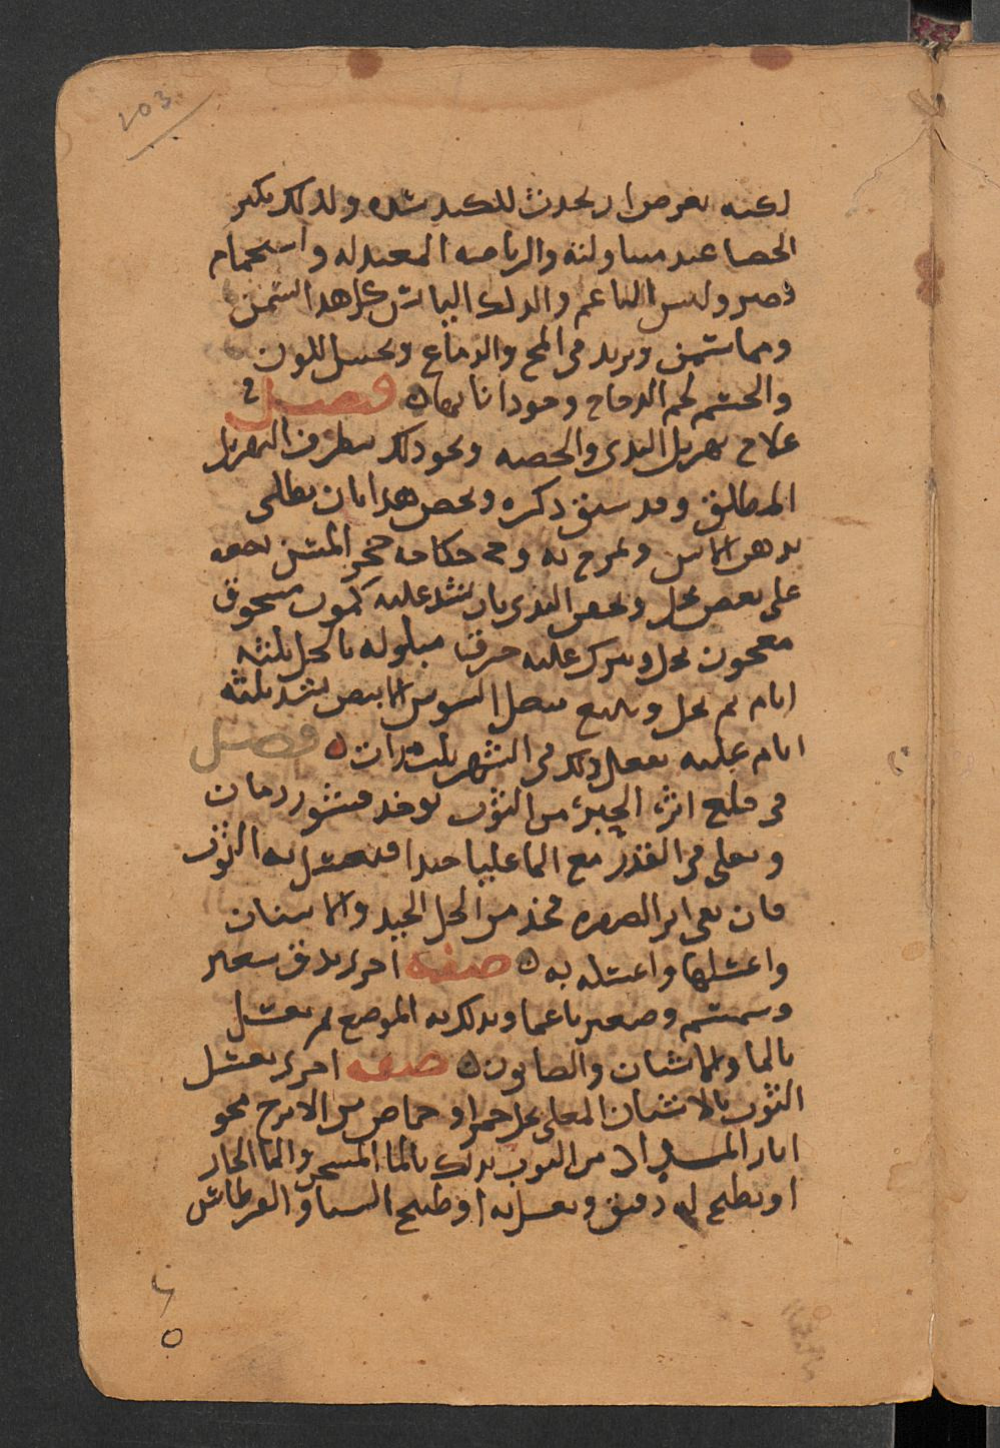 103
لكنه يعرض ان يحدث للكبد سدة ولذلك يكثر
الحصا عند مستاولته والرياضة المعتدلة واستحمام
قصير ولبس الناعم والدلك اليابس كل هذا يسمن
ومما يسمن ويزيد في المخ والدماغ ويحسن اللون
والجسم لحم الدجاج وجوذاباتها ه فصل في
علاج تهزيل الثدي والخصيه ونحو ذلك بطرق التهزيل
المطلق وقد سبق ذكره ويخص هذا بان يطلى
بدهن الآس ويمرخ به وحكاكة حجر المسن بعضه
على بعض بخل ويخص الثدي بان يشد عليه كمون مسحوق
معجون بخل ويترك عليه خرقا مبلوله بالخل ثلثة
ايام ثم يحل ويتبع ببصل السوس الابيض يشد ثلثه
ايام عليه يفعل ذلك في الشهر ثلث مرات ه فصل
في قلع اثر الحبر من الثوب يوخذ قشور رمان
ويغلى في القدر مع الما غليا جيدا فيغسل به الثوب
فان بقي اثر الصفره فخذ من الخل الجيد والاشنان
واغسلها واغسله به ه صفه اخرى يدق شعير
وسمسم وصعتر ناعما ويدلك به الموضع ثم يغسل
بالما والاشنان والصابون ه صفه اخرى يغسل
الثوب بالاشنان المغلى بخل خمر او حماض من الاترج محو
اثار المداد من الثوب يدلك بالما المسخن والما الحار
او يطبخ له دقيق ويغسل به او طبيخ السنا والقرطاس